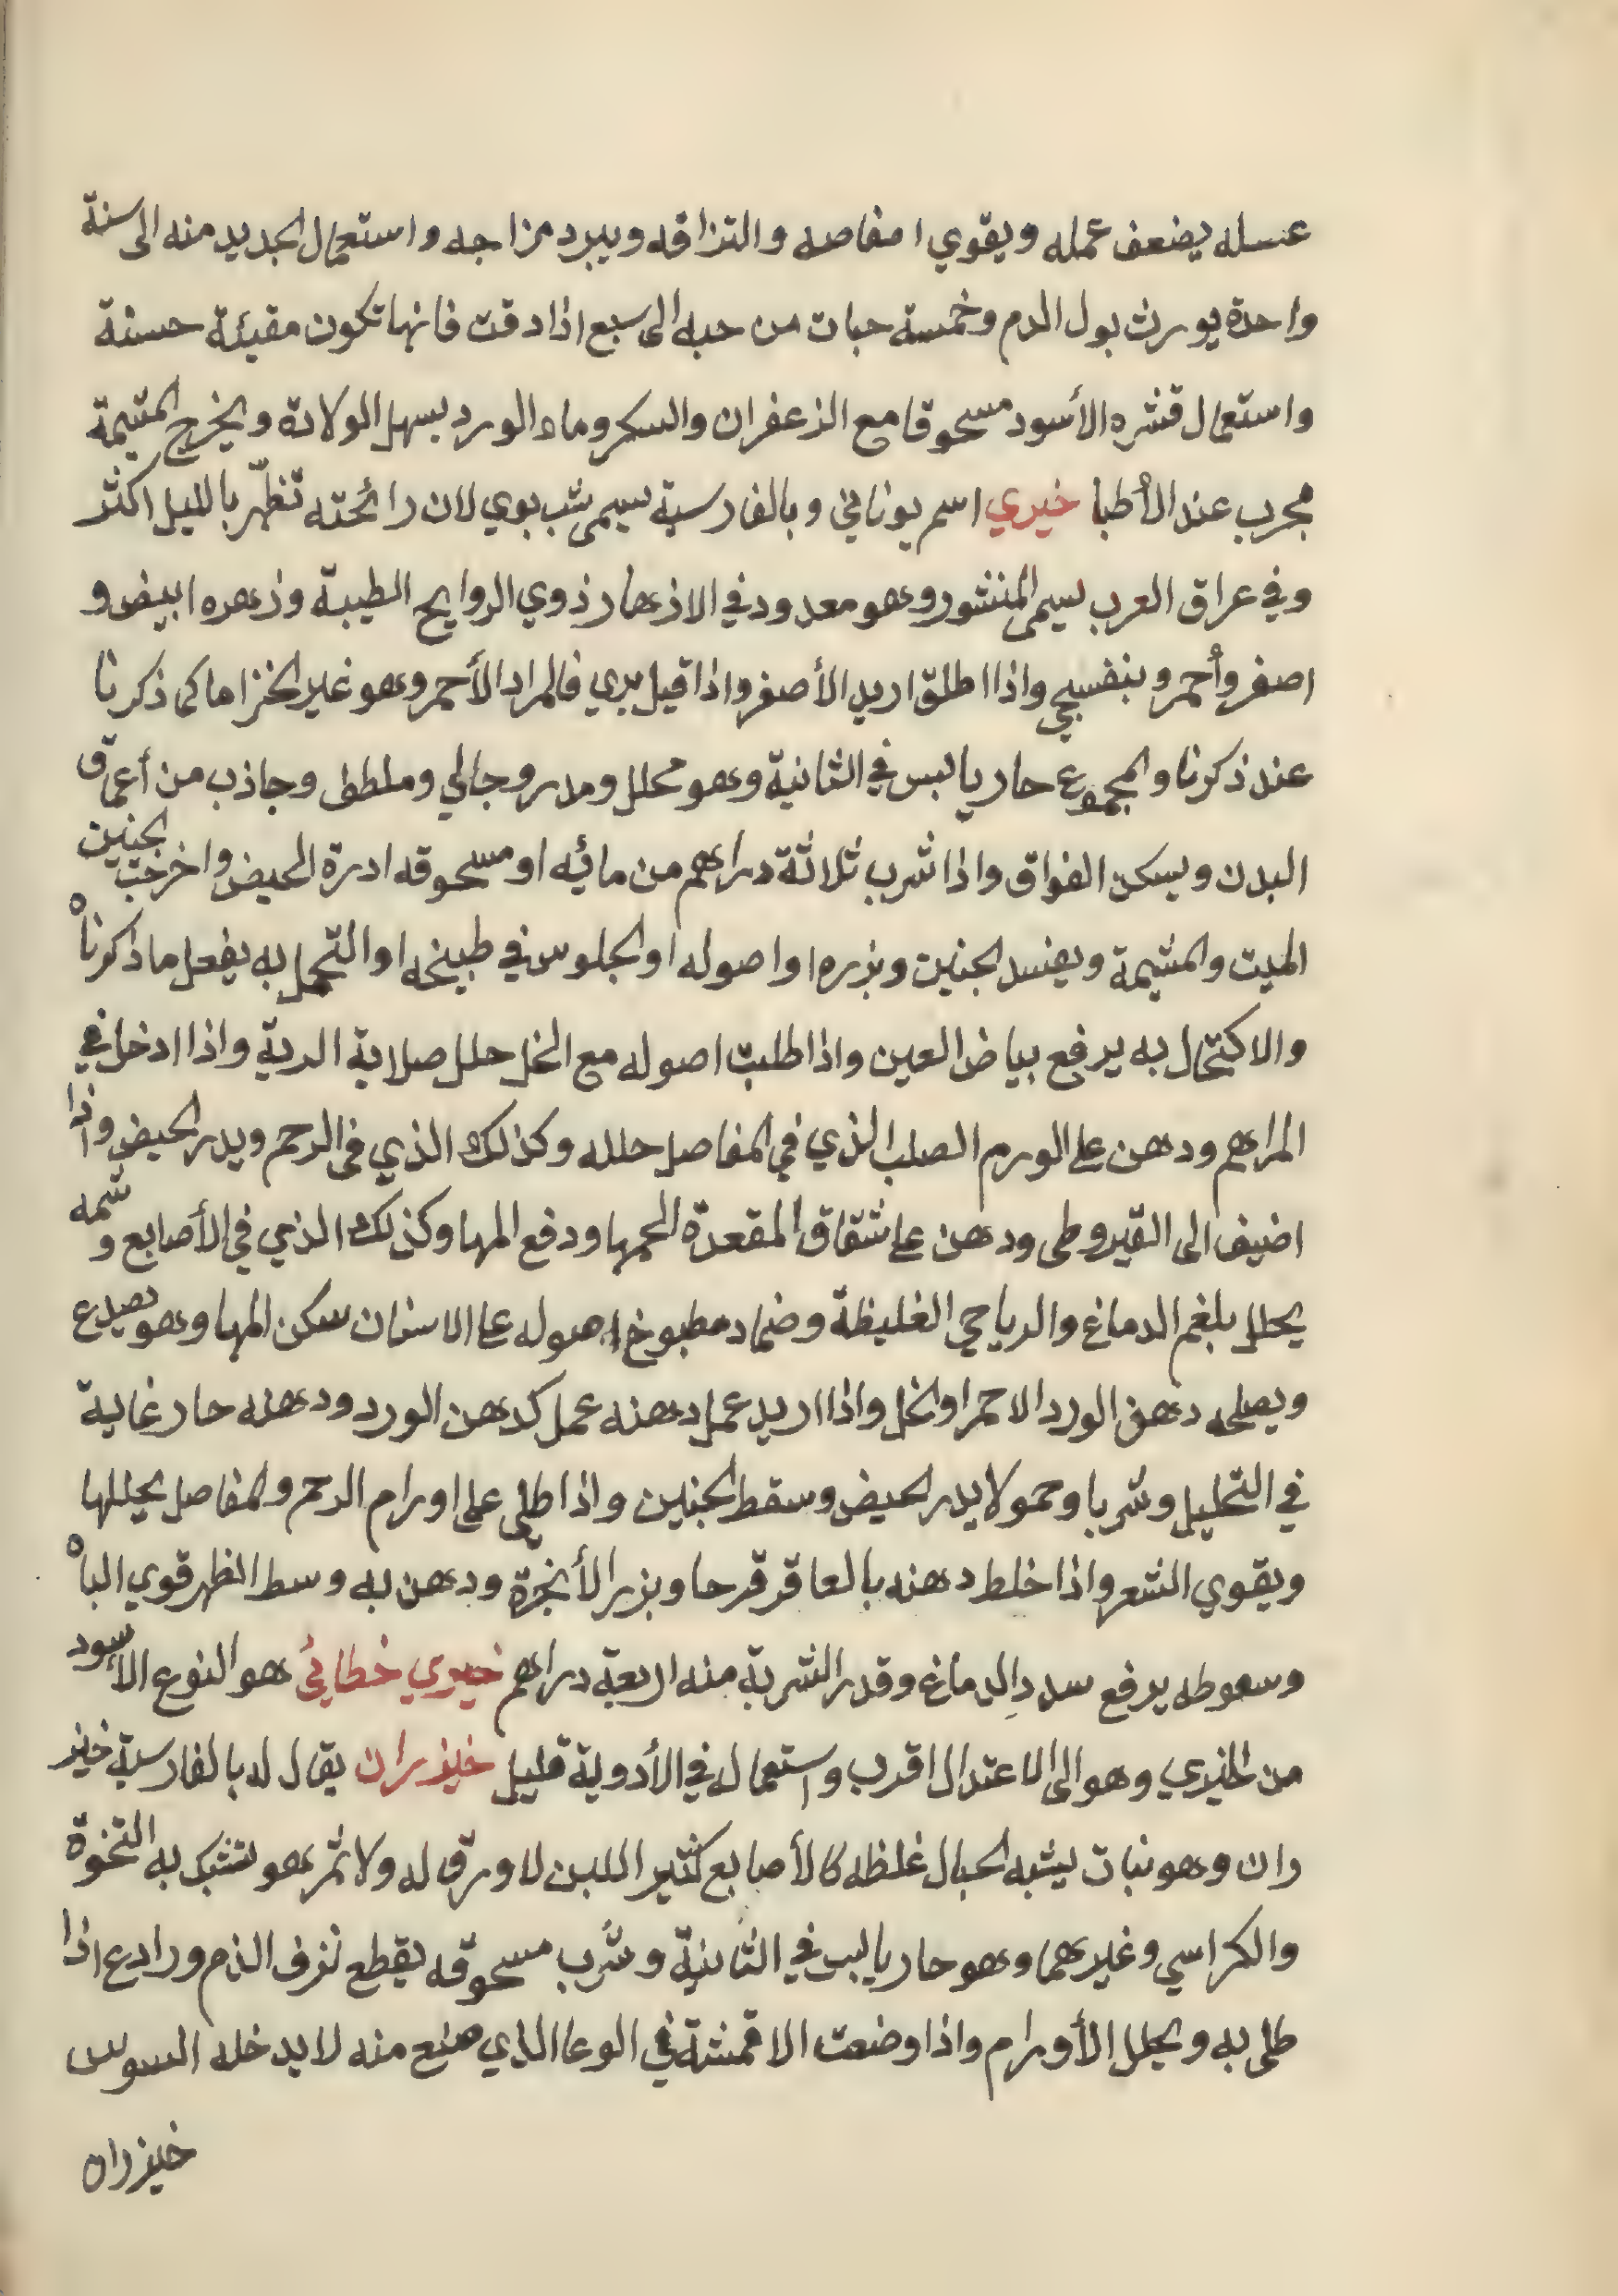 عسله يضعف عمله ويقوي امغاصه والتزاقه ويبرد مزاجه واستعمال الجديد منه الى سنة
واحدة يورث بول الدم وخمسة حبات من حبه الى سبع اذا دقت فانها تكون مقيئة حسنة
واستعمال قشره الأسود مسحوقا مع الزعفران والسكر وماء الورد يسهل الولادة ويخرج المشيمة
مجرب عند الأطبا خيري اسم يوناني وبالفارسية يسمى شب بوي لان رائحته تظهر بالليل اكثر
وفي عراق العرب يسمى المنشور وهو معدود في الازهار ذوي الروايح الطيبة وزهره ابيض و
اصفر وأحمر وبنفسجي واذا اطلق اريد الأصفر واذا قيل بري فالمراد الأحمر وهو غير الخزاما كما ذكرنا
عند ذكرنا والمجموع حار يابس في الثانية وهو محلل ومدر وجالي وملطف وجاذب من أعماق
البدن ويسكن الفواق واذا شرب ثلاثة دراهم من مائيه او مسحوقه ادرة الحيض واخرجت الجنين
الميت والمشيمة ويفسد الجنين وبزره او اصوله او الجلوس في طبيخه او التحمل به يفعل ما ذكرناه
والاكتحال به يرفع بياض العين واذا طلبت اصوله مع الخل حلل صلابة الرية واذا ادخل في
المراهم ودهن على الورم الصلب الذي في المفاصل حلله وكذلك الذي في الرحم ويدر الحيض واذا
اضيف الى القيروطي ودهن على شقاق المقعدة الحمها ودفع المها وكذلك الذي في الأصابع وشمه
يحلل بلغم الدماغ والرياحي الغليظة وضماد مطبوخ اصوله على الاسنان سكن المها وهو يصدع
ويصلحه دهن الورد الاحمر او الخل واذا اريد عمل دهنه عمل كدهن الورد ودهنه حار غاية
في التحليل وشربا وحمولا يدر الحيض وسقط الجنين واذا طلي على اورام الرحم والمفاصل يحللها
ويقوي الشعر واذا خلط دهنه بالعاقر قرحا وبزر الأنجرة ودهن به وسط الظهر قوي الباه
وسعوطه يرفع سدد الدماغ وقدر الشربة منه اربعة دراهم خيري خطائي هو النوع الأسود
من الخيري وهو الى الاعتدال اقرب واستعماله في الأدوية قليل خيزران يقال له بالفارسية خيز
ران وهو نبات يشبه الحبال غلظه كالأصابع كثير اللبن لا ورق له ولا ثمر هو تشبك به التخوة
والكراسي وغيرهما وهو حار يابس في الثانية وشرب مسحوقه يقطع نزف الدم ورادع اذا
طلي به ويحلل الأورام واذا وضعت الاقمشة في الوعا الذي صنع منه لا يدخله السوس
خيزران